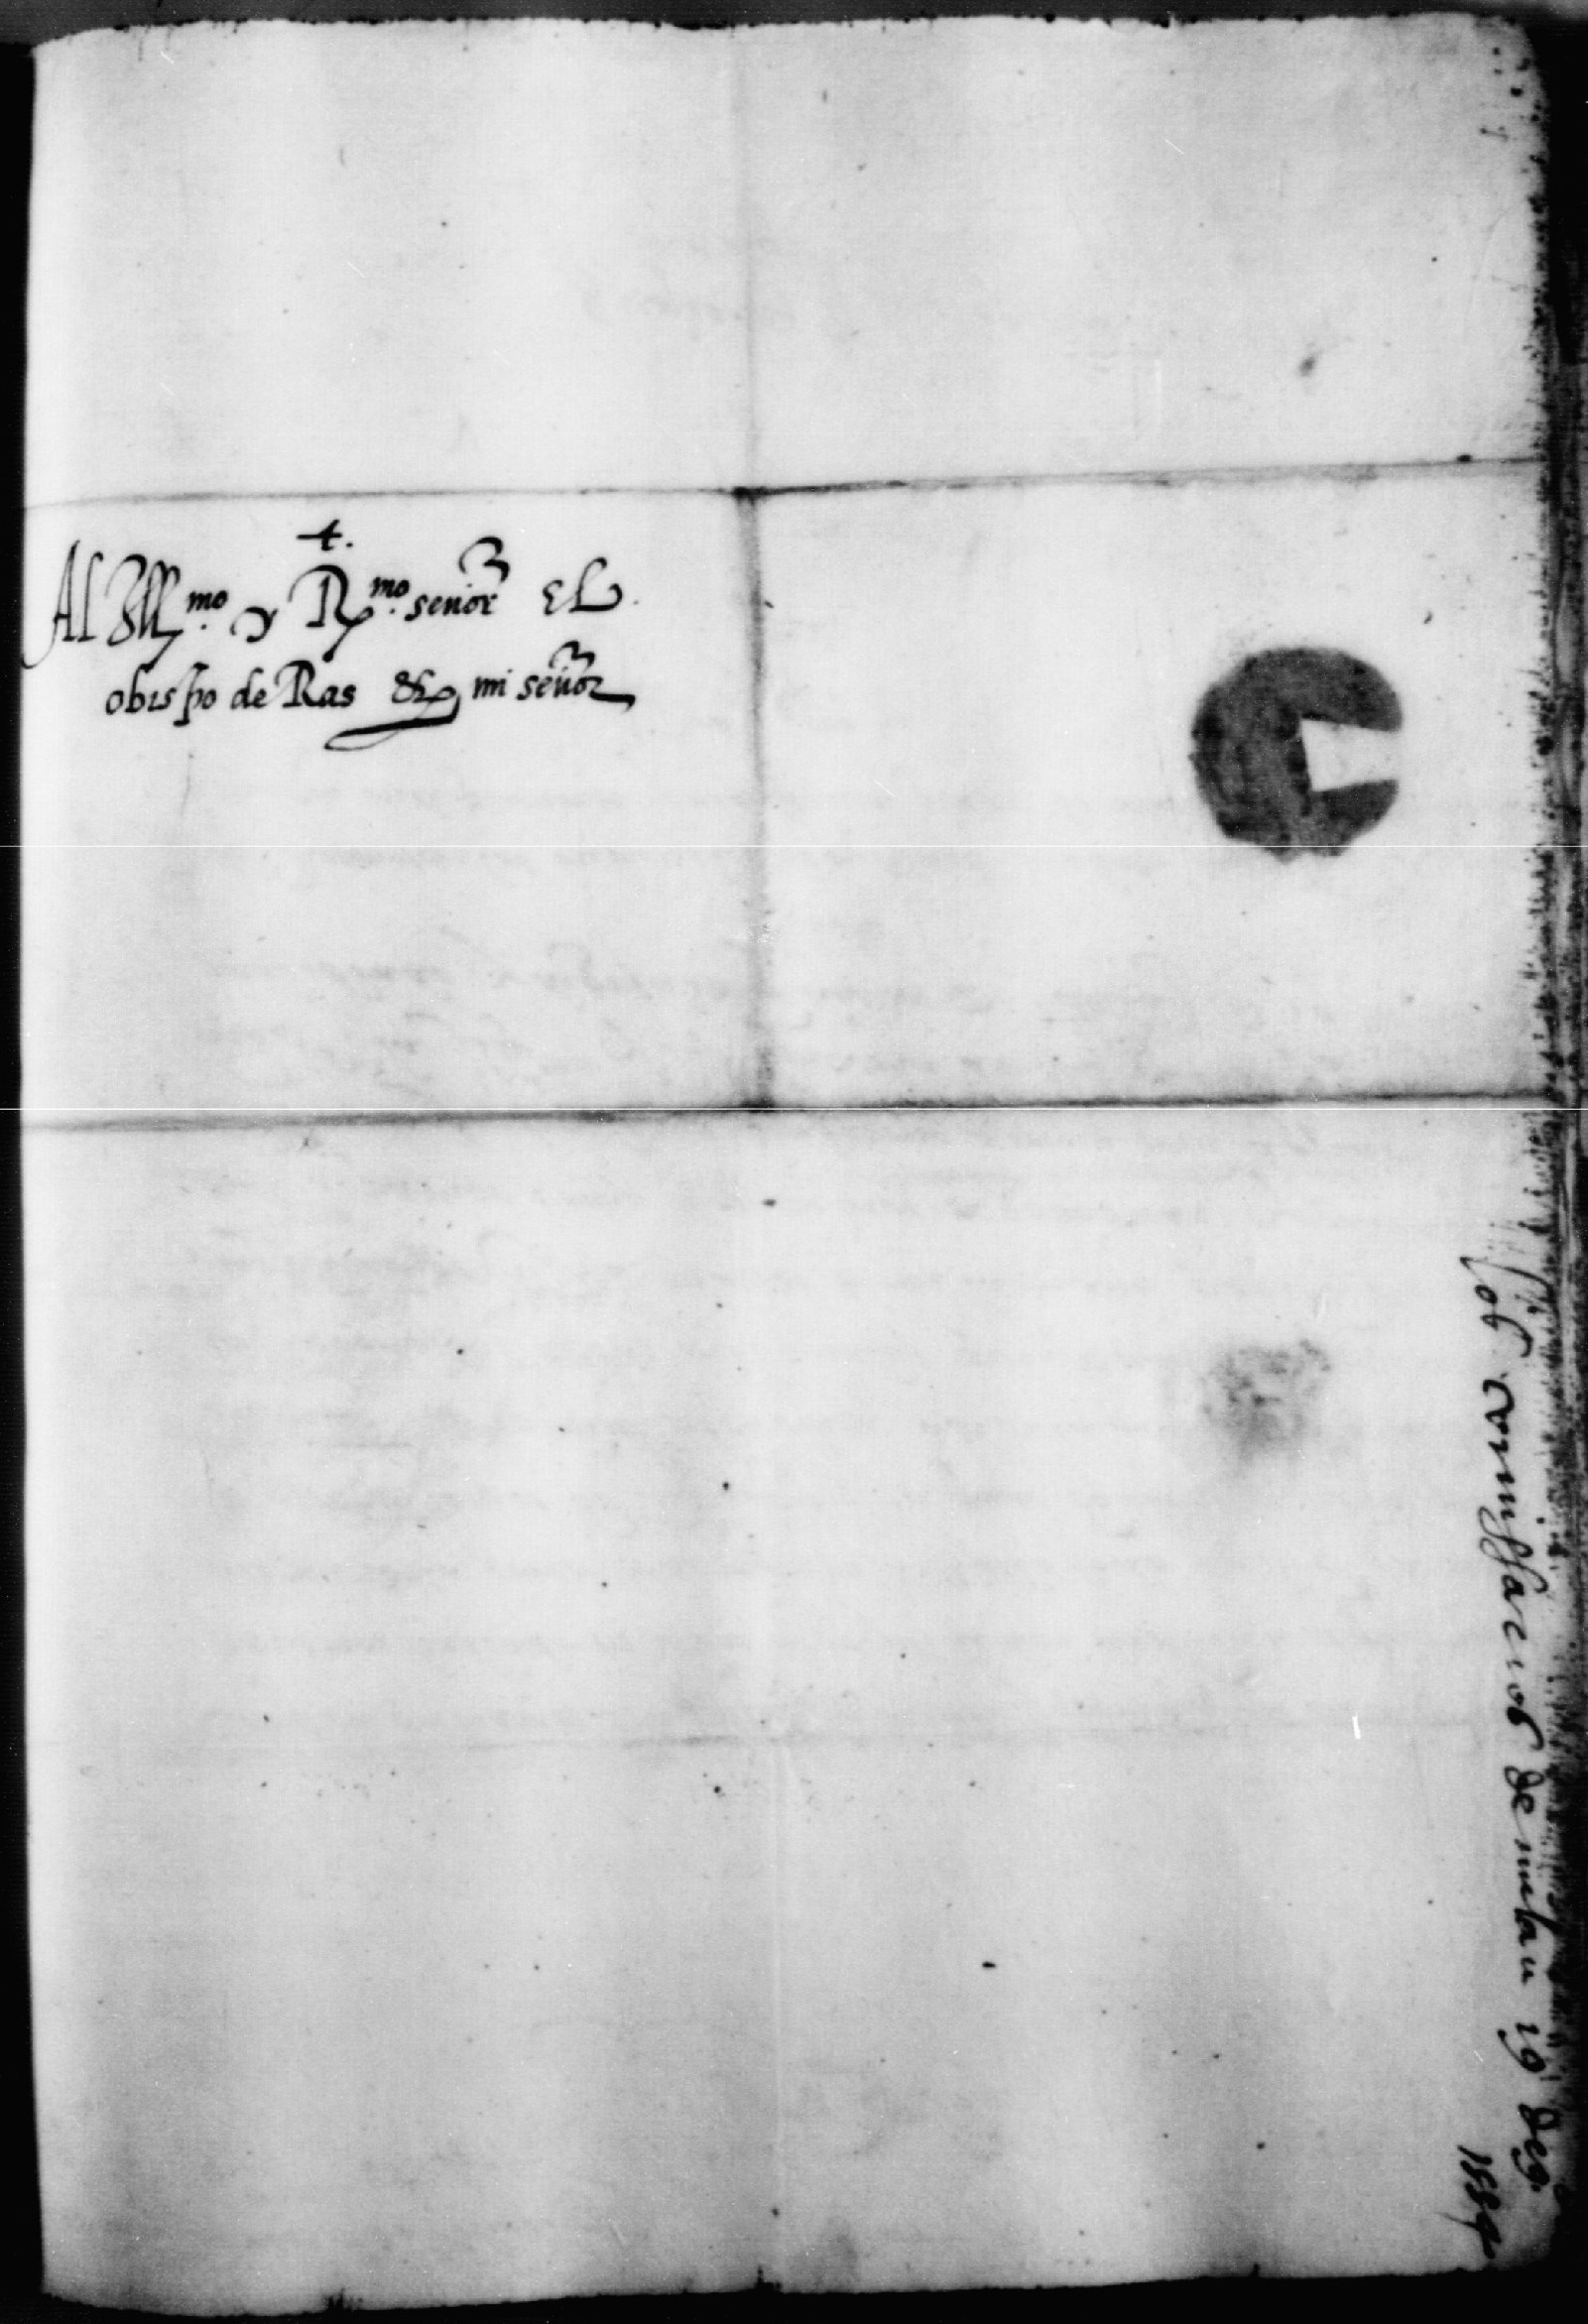 +.
Al Illmo. y Rmo. señor El
obispo de Ras &c mi señor
los comissarios de milan 19 de
1554